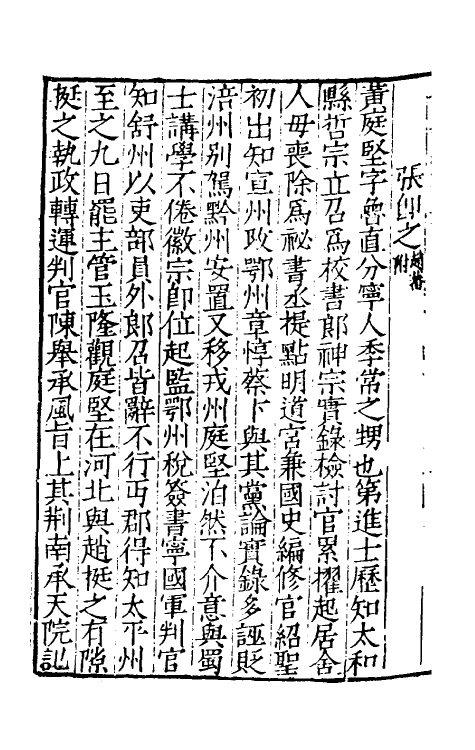 張即之附
黃庭堅字魯直分寧人李常之甥也第進士歷知太和
縣哲宗立召爲校書郎神宗實錄檢討官累擢起居舍
人毋喪除爲祕書丞提點明道宮兼國史編修官紹聖
初出知宣州改鄂州章惇蔡卞與其黨論實錄多誣貶
涪州別駕黔州安置又移戎州庭堅泊然不介意與蜀
士講學不倦徽宗即位起監鄂州稅簽書寧國軍判官
知舒州以吏部員外郎召皆辭不行丐郡得知太平州
至之九日罷主管玉隆觀庭堅在河北與趙挺之有隙
挺之執政轉運判官陳舉承風旨上其荆南承天院記